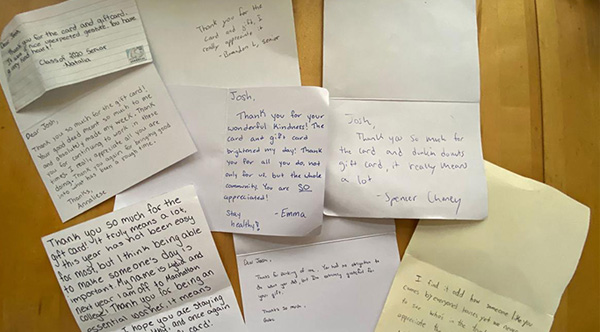 Dear Josh,
Thank you for the card and giftcard.
It was a nice unexpected gesture. You have
a very kind heart!
Class of 2020 Senior
Natalia
Thank you for the
card and gift, I
really appreciate it
- Brandon L, senior
Dear Josh,
Thank you so much for the gift card!
Your good deed meant so much to me
and absolutely made my week. Thank
you for continuing to work in these
times, I really appreciate all you are
doing. Thank you again for bringing good
into what has been a rough time.
Thanks,
Annaliese
Josh,
Thank you for your
wonderful kindness! The
card and gift card
brightened my day! Thank
you for all you do, not
only for us, but the whole
community. You are SO
appreciated!
Stay
healthy! - Emma
Josh,
Thank you so much for
the card and dunkin donuts
gift card, it really means
a lot
- Spencer
Thank you so much for the
gift card! It truly means a lot,
this year has not been easy
for most, but I think being able
to make someone's day is
important. My name is and
next year I am off to Manhattan
College! Thank you for being an
essential worker it means
I hope you are staying
and once again
card!
Dear Josh,
Thank you for thinking of me. You had no obligation to
do what you did, but I'm extremely grateful for
your gift.
Thanks so much,
I find it odd how someone like you
appreciate the